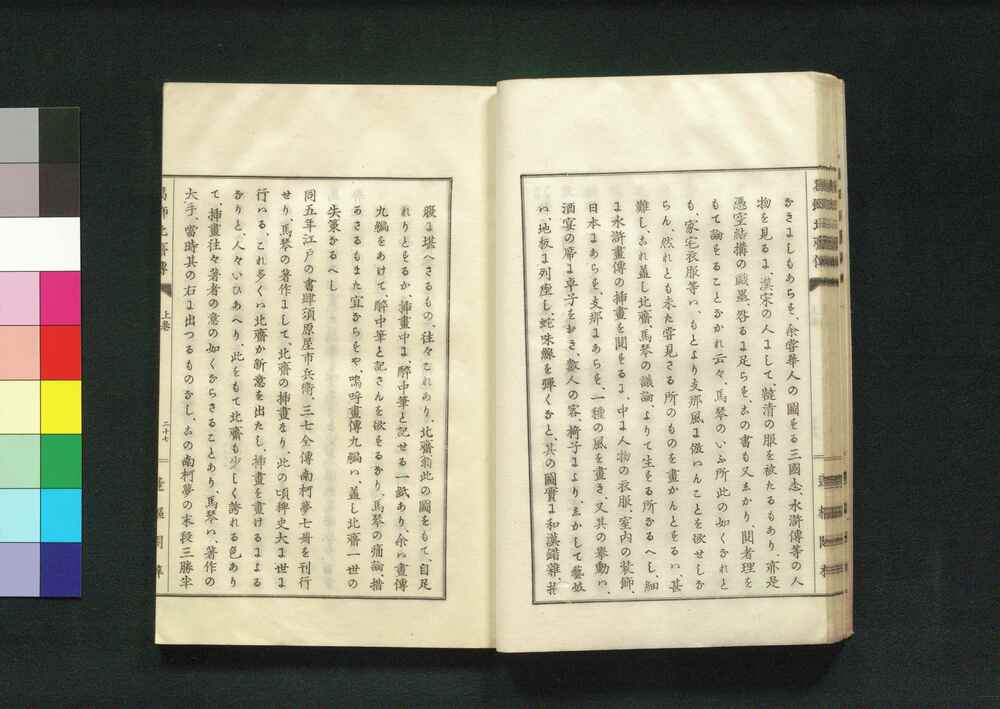 かきましもあらを、余嘗華人の圖せる三國志、水滸傳等の人
物を見るに、漢宋の人にして、韃清の服を被たるもあり、亦是
憑空結構の戯墨、咎るに足らを、古の書も又しかり、閲者理を
もて論をることなかれ云々、馬琴のいふ所此の如くなれと
も、家宅衣服等ハ、もとより支那風に倣ハんことを欲せしな
らん、然れとも未た嘗見さる所のものを畫かんとをるハ甚
難し、これ蓋し北齋馬琴の議論よりて生をる所なるへし細
に水滸畫傳の挿畫を閲をるに、中に人物の衣服、室内の装飾、
日本にあらを、支那にあらを、一種の風を畫き、又其の擧動ハ、
酒宴の席に卓子をおき、數人の客、椅子により、しかして藝妓
ハ、地板に列座し、蛇味線を彈くなと、其の圖實に和漢錯雜、抱
腹に堪へさるもの、往々これあり、北齋翁此の圖をもて、自足
れりとをるか、挿畫中に、醉中筆と記せる一紙あり、余ハ畫傳
九編をあけて、醉中筆と記さんを欲をるなり、馬琴の痛論、措
るさるもまた宜からをや、嗚呼畫傳九編ハ、蓋し北齋一世の
失策なるへし
同五年江戸の書肆須原屋市兵衛、三七全傳南柯夢七冊を刊行
せり、馬琴の著作にして、北齋の挿畫なり、此の頃稗史大に世に
行ハる、これ多くハ北齋か新意を出たし挿畫を畫けるによる
なりと、人々いひあへり、此をもて北齋も少しく誇れる色あり
て、挿畫往々著者の意の如くならさることあり、馬琴ハ、著作の
大手、當時其の右に出つるものなし、この南柯夢の末段三勝半
飾北齋傳
上卷
二十七